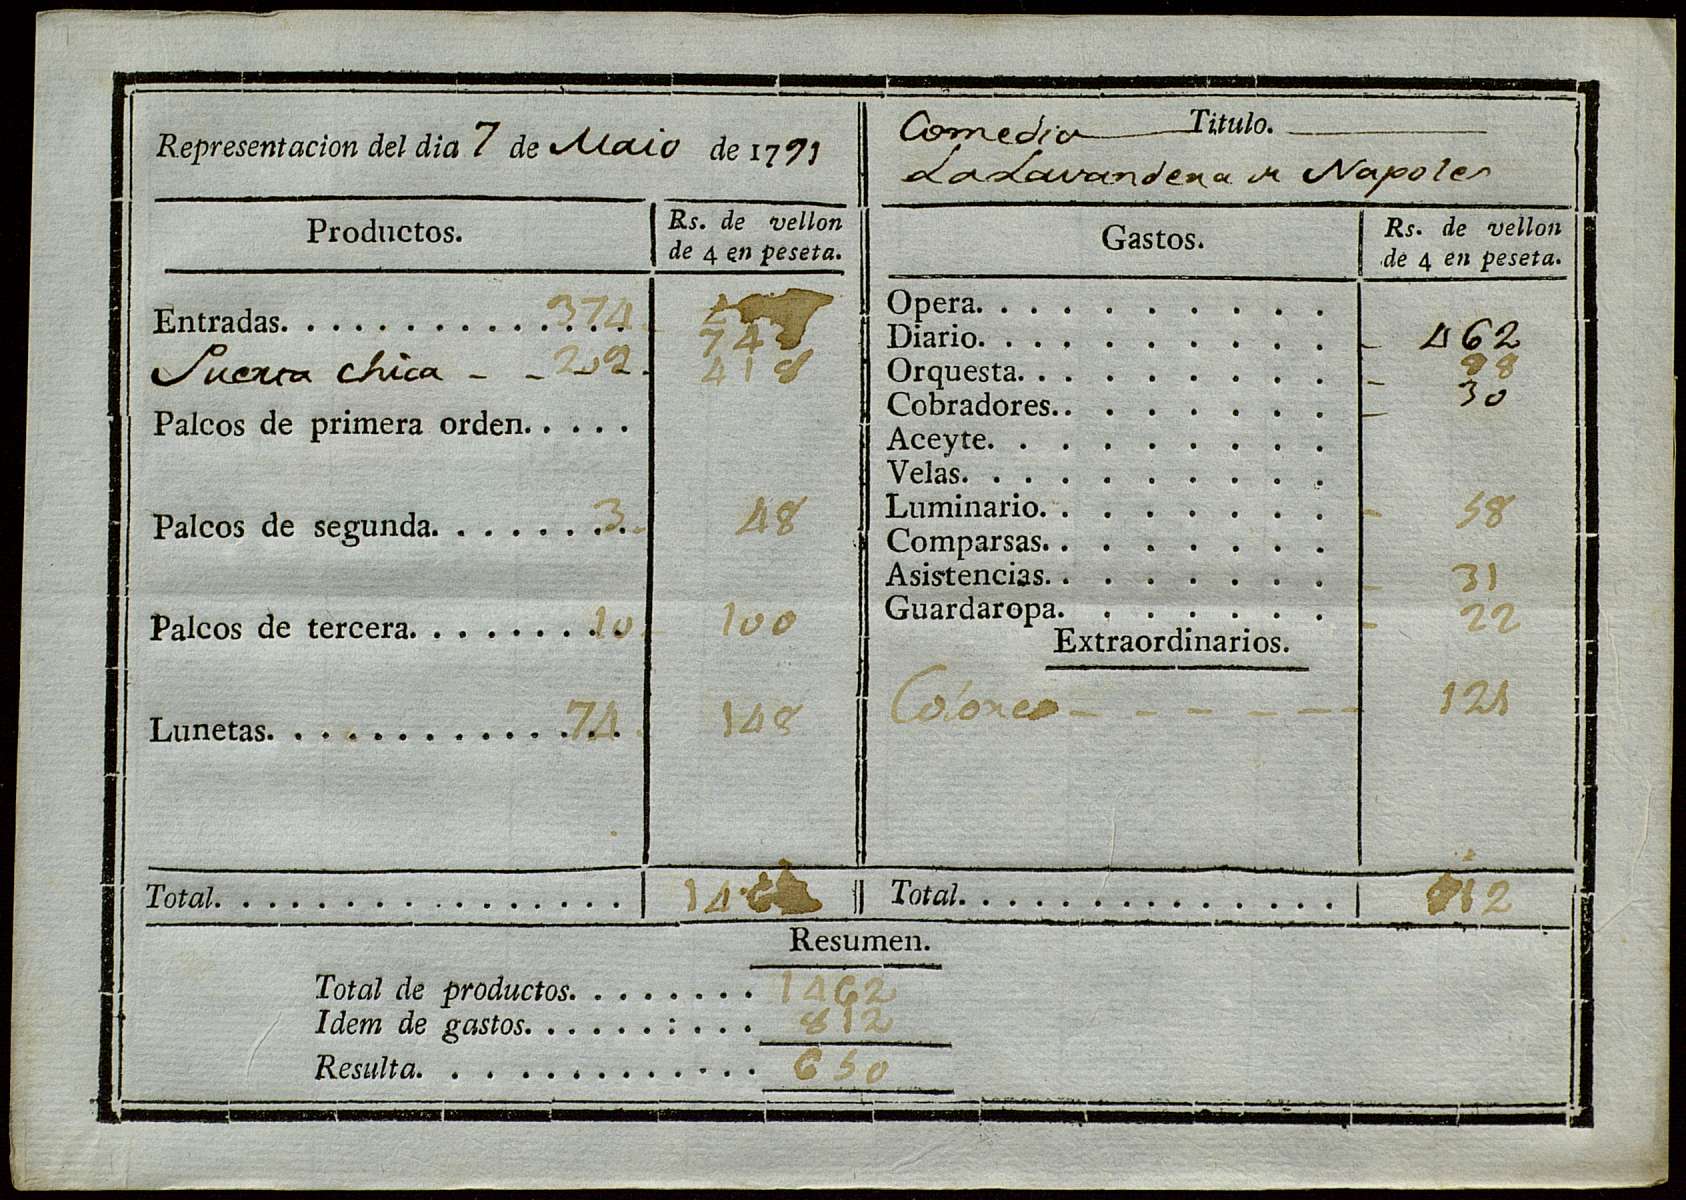 Representacion del dia 7 de Maio de 1791
Comedia Titulo.
La Lavandera de Napoles
Productos. Rs. de vellon de 4 en peseta.
Entradas. 374 748
Puerta chica - - - 209 418
Palcos de primera orden.
Palcos de segunda. 3 48
Palcos de tercera. 10 100
Lunetas. 74 148
Total. 1462
Gastos. Rs. de vellon de 4 en peseta.
Opera.
Diario. 462
Orquesta. 88
Cobradores. 30
Aceyte.
Velas.
Luminario. 58
Comparsas.
Asistencias. 31
Guardaropa. 22
Extraordinarios.
121
Total. 812
Resumen.
Total de productos. 1462
Idem de gastos. 812
Resulta. 650